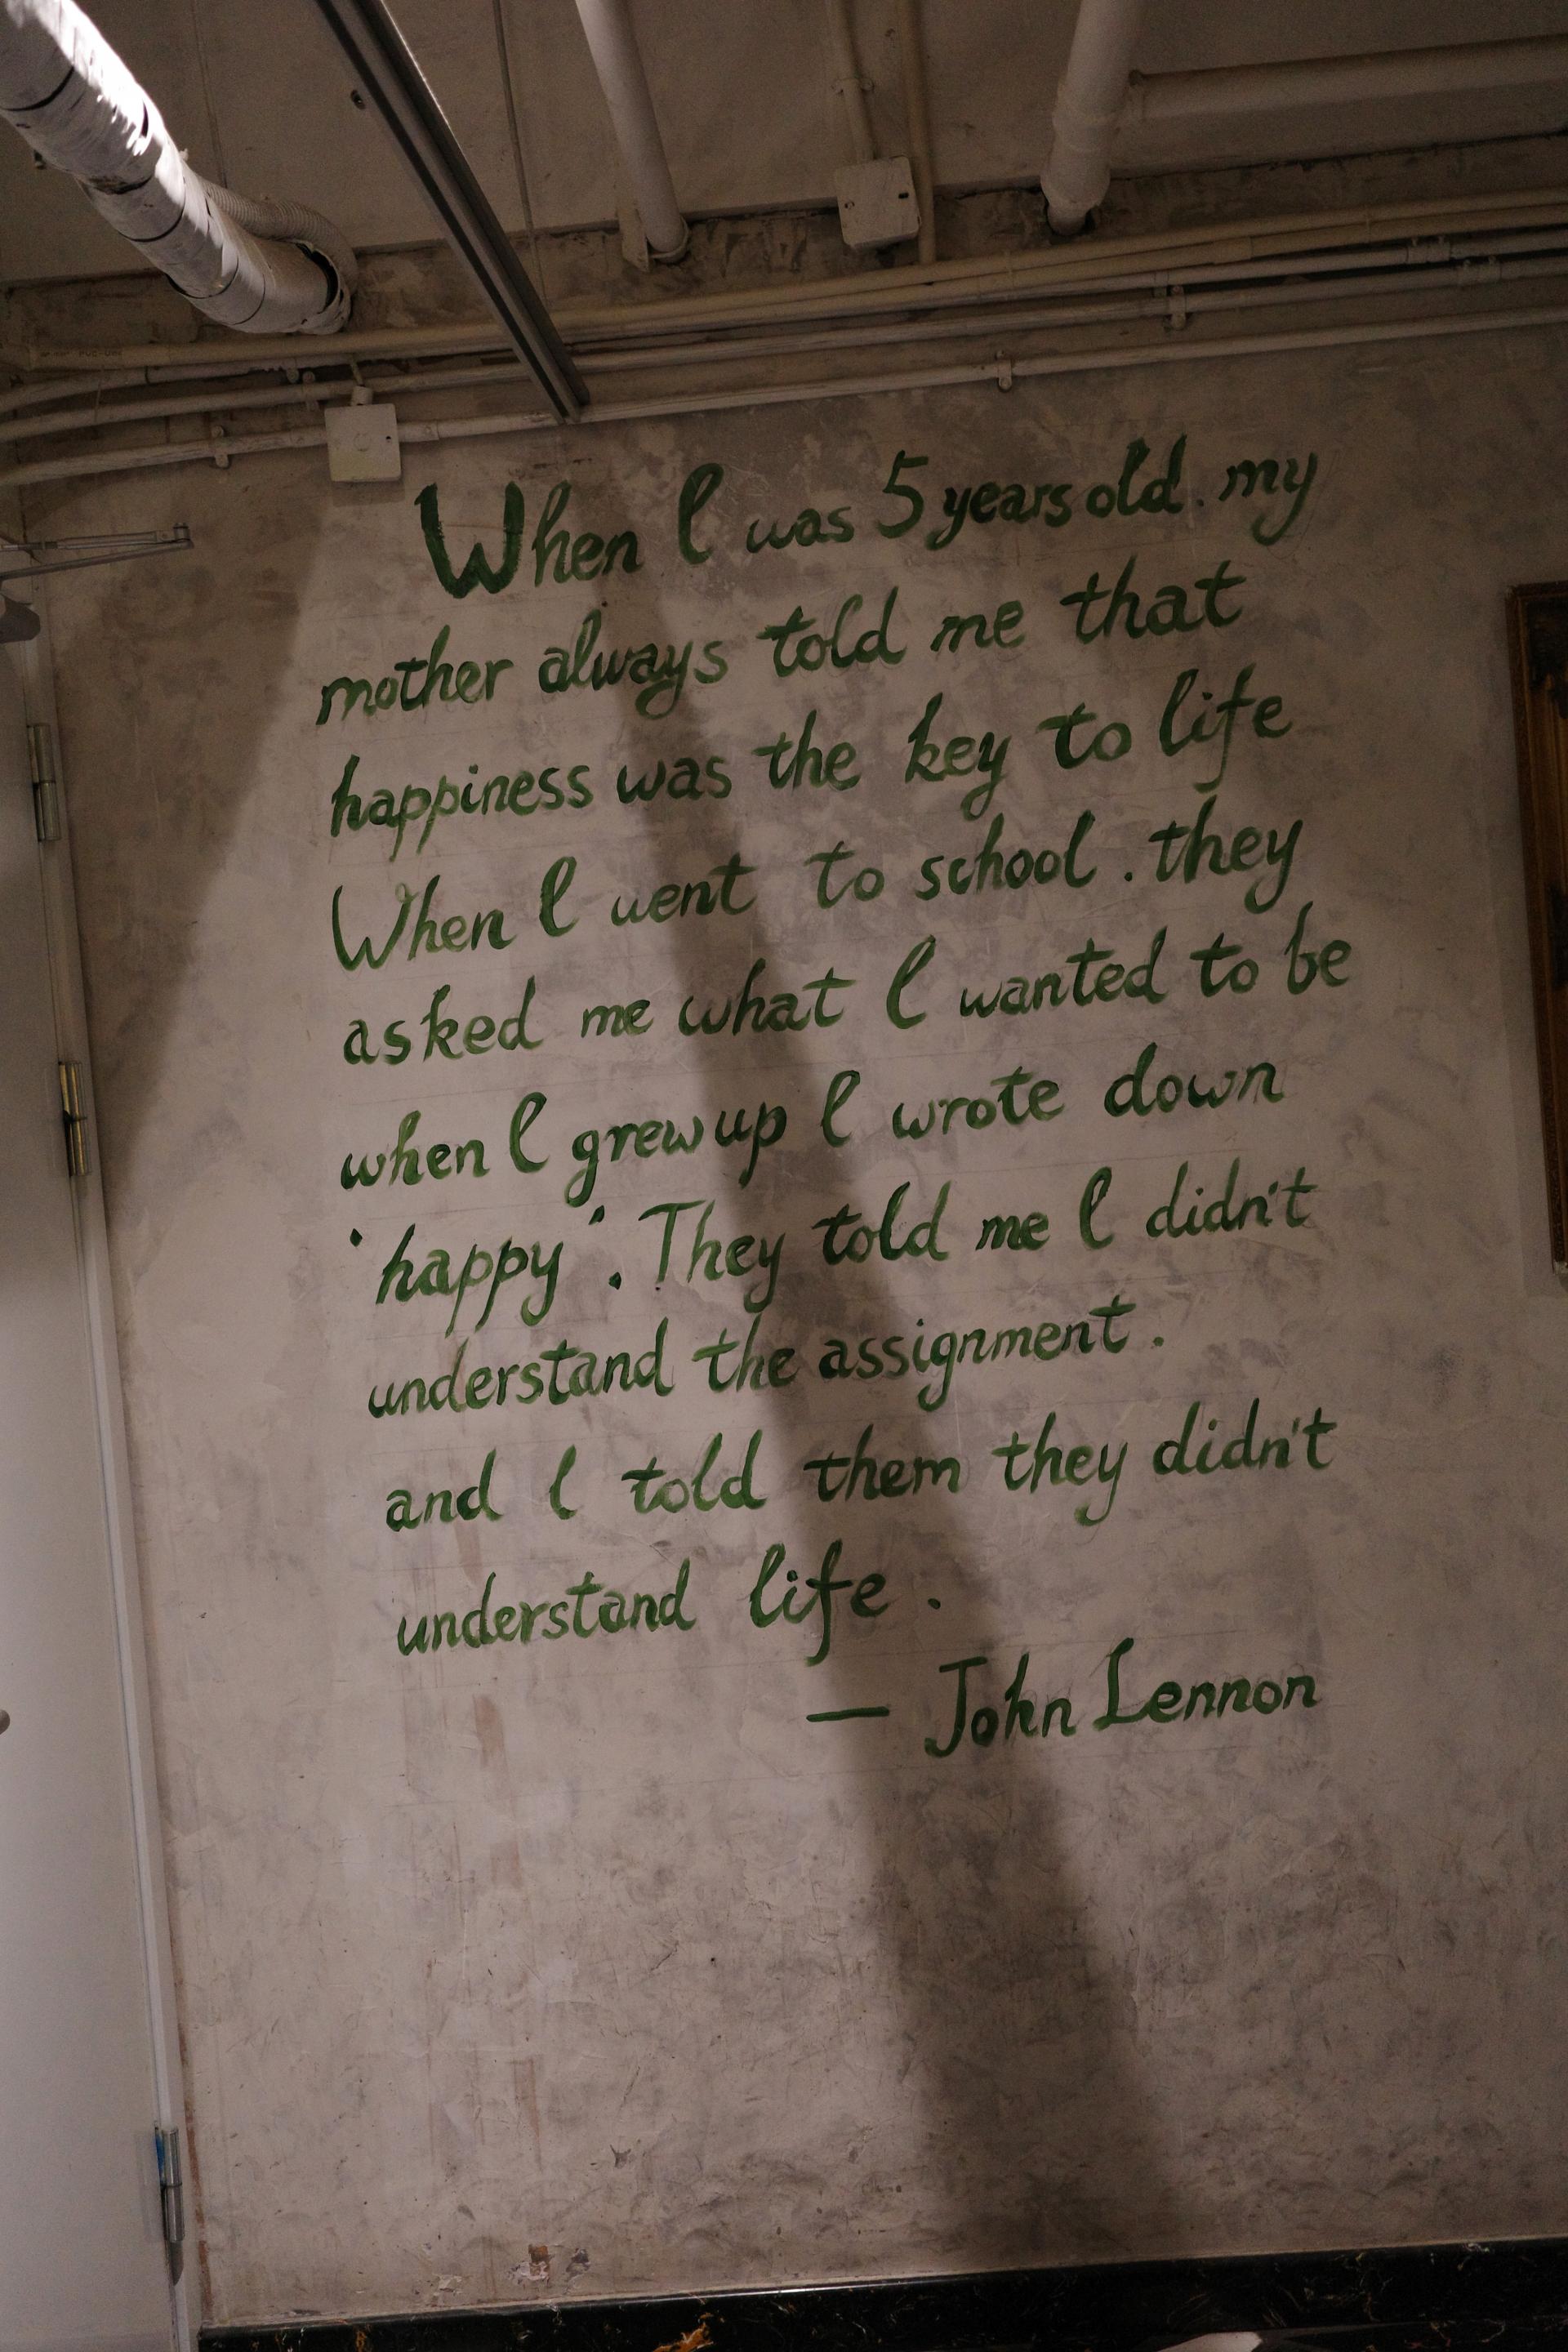 When I was 5 years old. my
mother always told me that
happiness was the key to life
When I went to school. they
asked me what I wanted to be
when I grew up I wrote down
'happy". They told me I didn't
understand the assignment.
and I told them they didn't
understand life.
— John Lennon